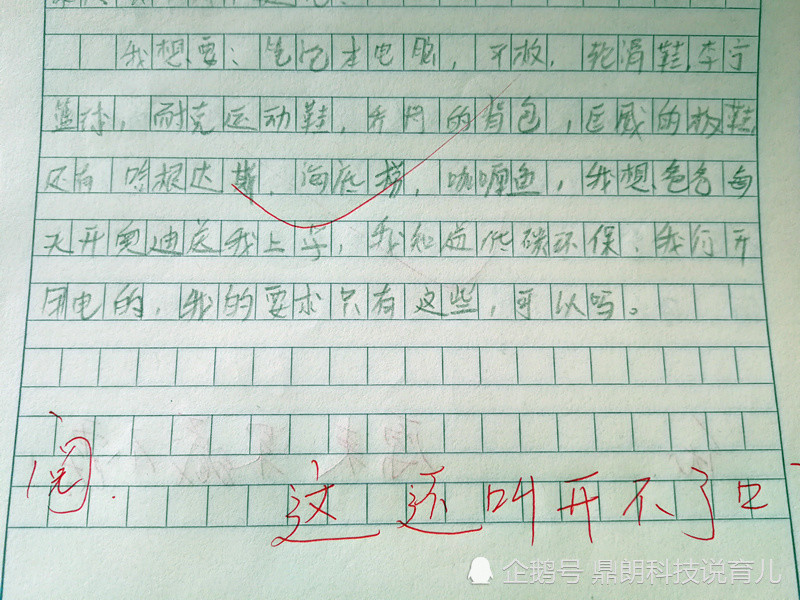 我想要：笔记本电脑，手机，轮滑鞋，李宁
篮球，耐克运动鞋，乔丹的背包，匡威的板鞋，
还有哈根达斯，海底捞，咖喱鱼，我想爸爸每
天开奥迪送我上学，我知道低碳环保，我们开
用电的，我的要求只有这些，可以吗。
阅
这还叫开不了口
企鹅号 鼎朗科技说育儿